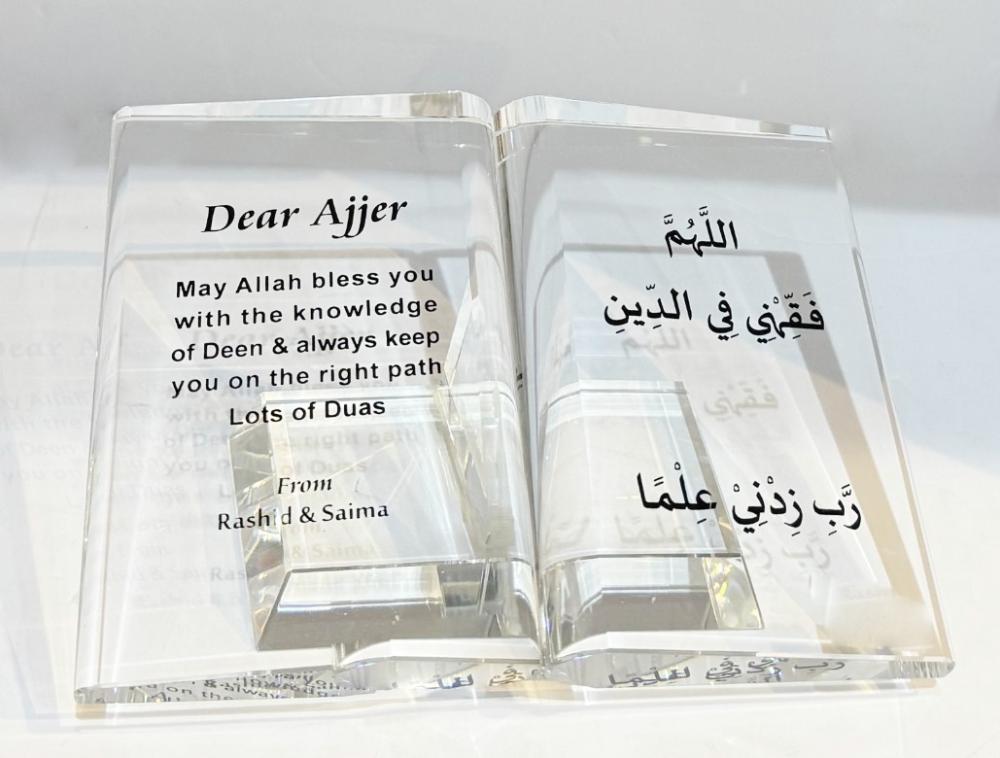 Dear Ajjer
May Allah bless you
with the knowledge
of Deen & always keep
you on the right path
Lots of Duas
From
Rashid & Saima
اللَّهُمَّ
فَقِّهْنِي فِي الدِّينِ
رَّبِ زِدْنِيْ عِلْمًا